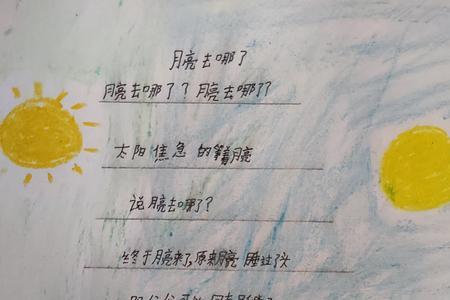 月亮去哪了
月亮去哪了？？月亮去哪了？
太阳焦急的等着月亮
说月亮去哪了？
终于月亮来了,原来月亮睡过了头